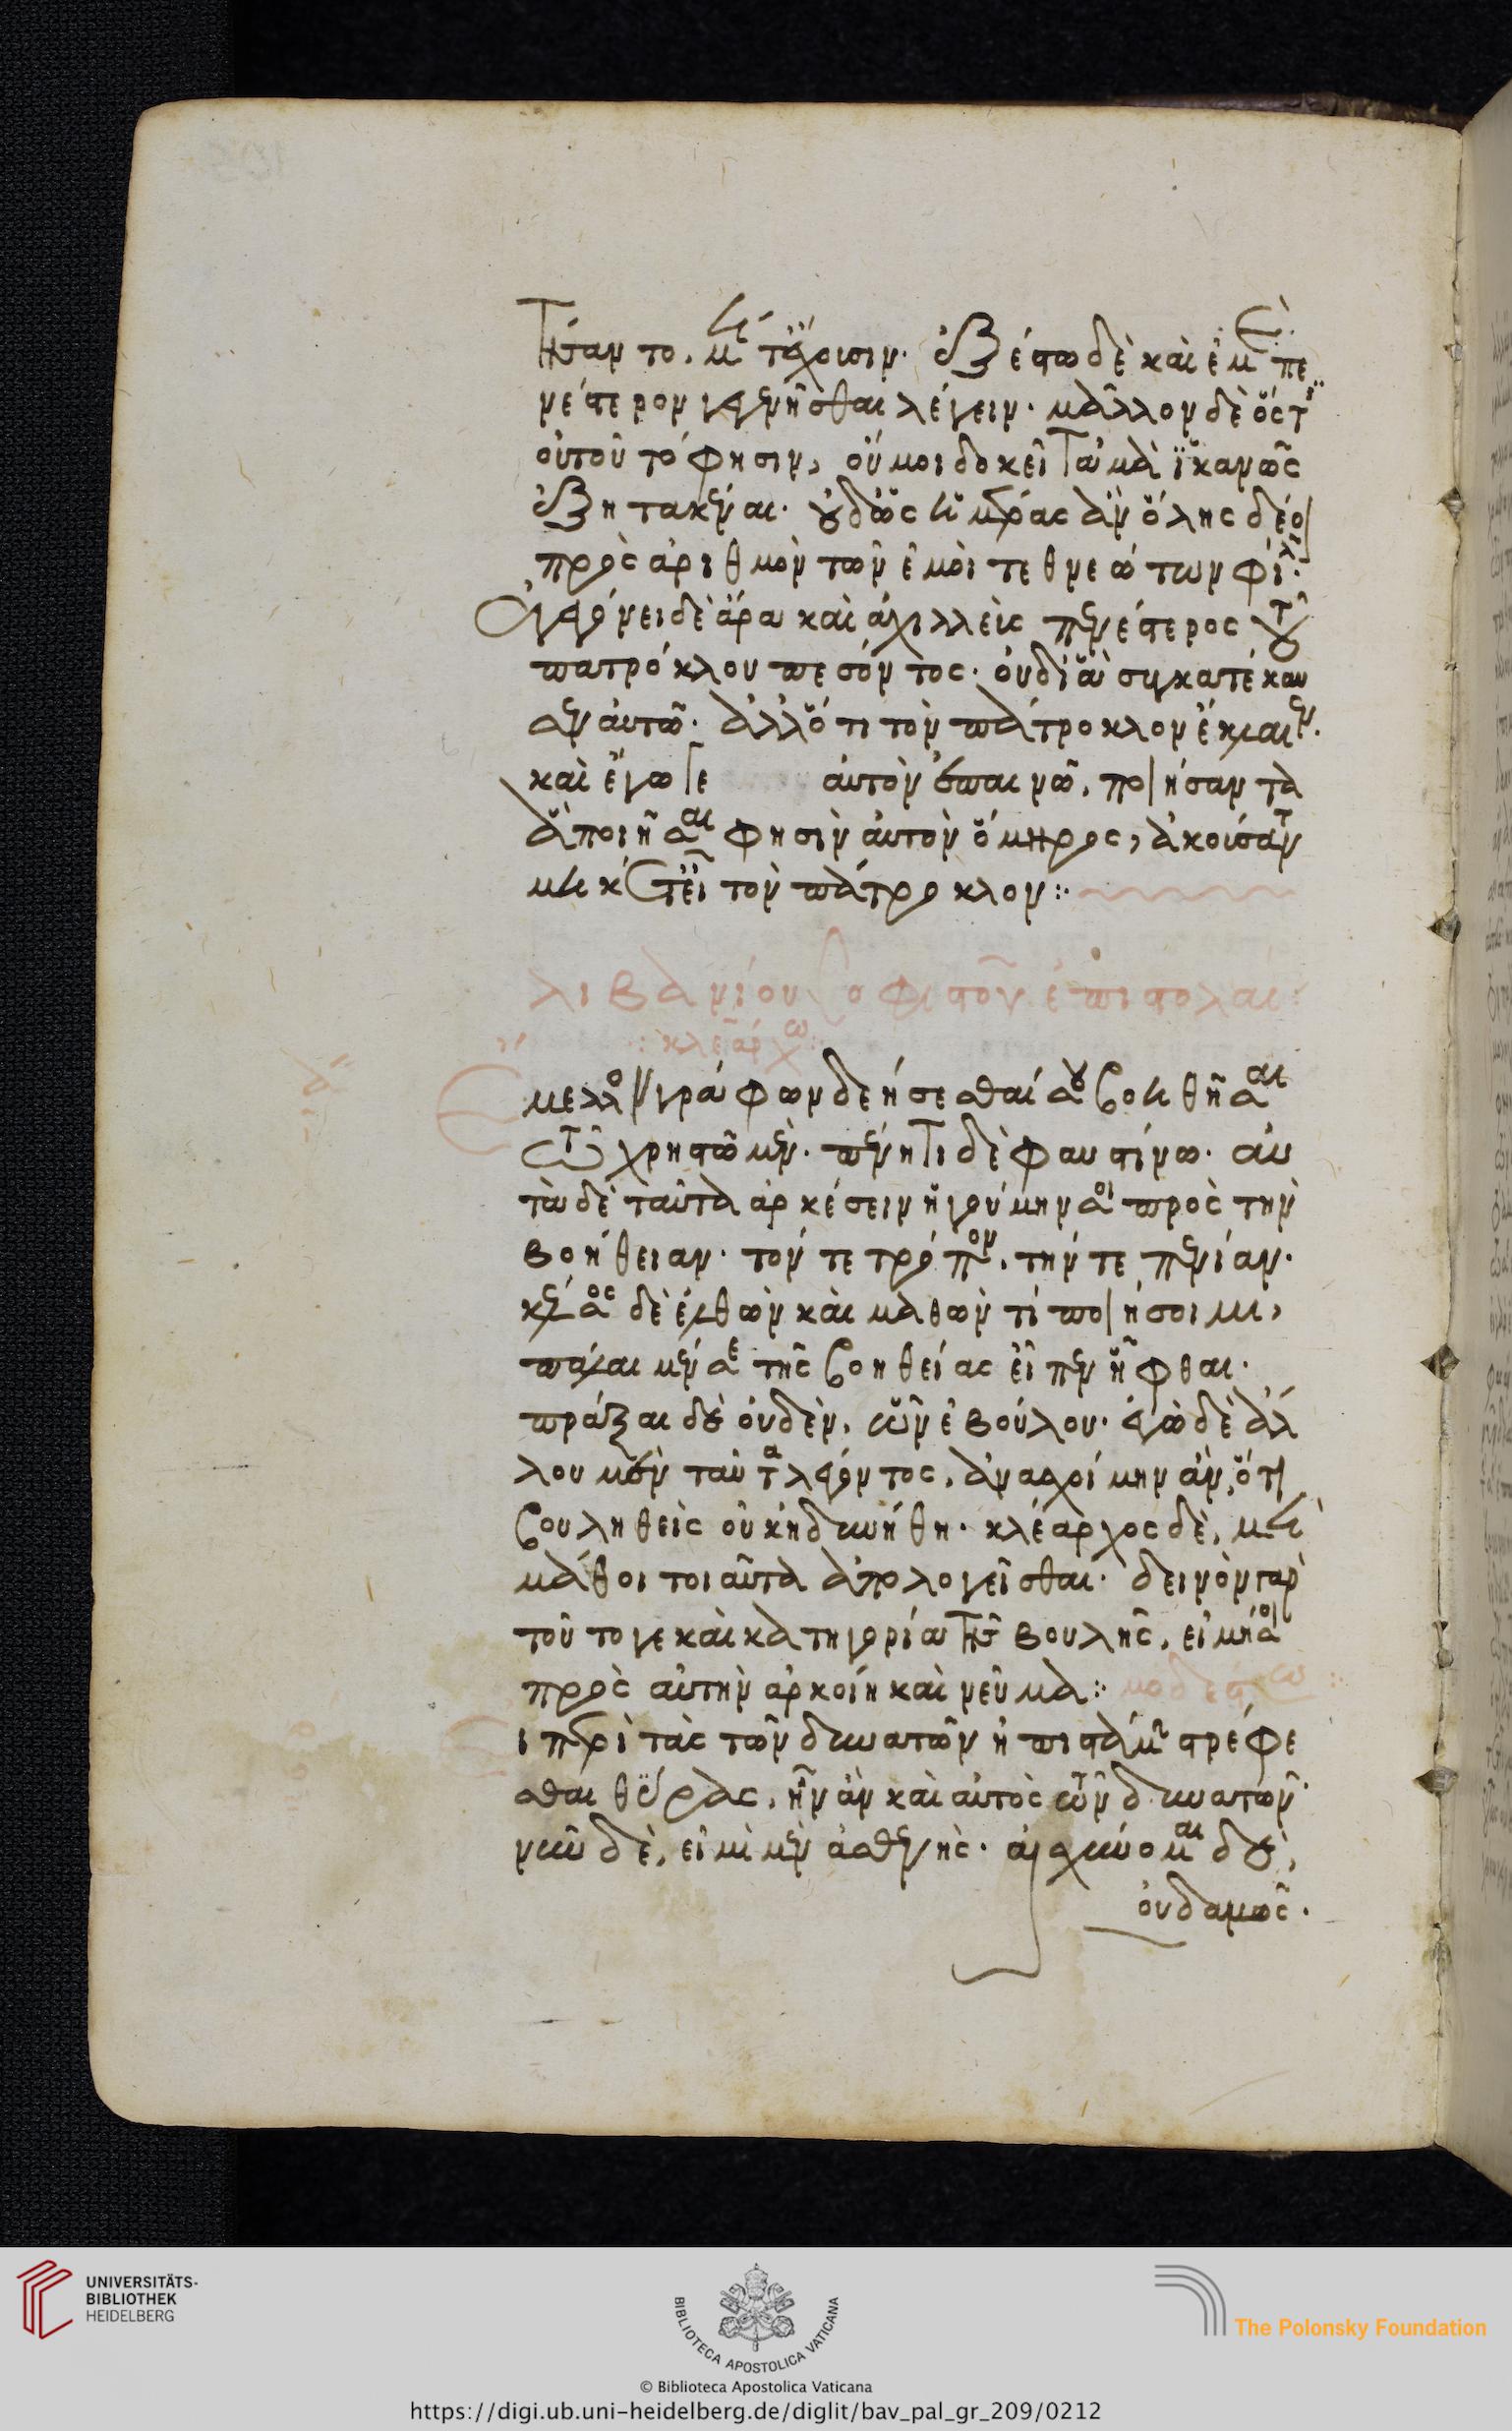 μὴ τύχοιεν. ἐξέστω δὲ καὶ
νέστερον γεγενῆσθαι λέγειν. μᾶλλον δὲ ὅστις
οὑτοῦτό φησιν, οὔ μοι δοκεῖ τἀμὰ ἱκανῶς
ἐξητακέναι. οὐδ' ὡς ἡμέρας ἂν ὅλης δέοι
πρὸς ἀριθμὸν τῶν ἐμοὶ τεθνεώτων φίλων.
Ἐγεγόνει δὲ ἄρα καὶ ἀχιλλεὺς πενέστερος τοῦ
πατρόκλου πεσόντος. οὐδ' ἃ συγκατέκαυ
σεν αὐτῶ. ἀλλ' ὅτι τὸν πάτροκλον ἔκλαιεν.
καὶ ἔγωγε αὐτὸν ἐπαινῶ, ποιήσαντα
ἃ ποιῆσαι φησὶν αὐτὸν ὅμηρος, ἀκούσαντα
τὸν πάτροκλον:
λιβανίου σοφιστοῦ ἐπιστολαί:
: κλεάρχω :
Ἔμελλον γράφων δεήσεσθαί σου βοηθῆσαι
τῶ χρηστῶ μὲν. πένητι δὲ φαυστίνω. αὐ
τὰ δὲ ταῦτα ἀρκέσειν ἡγούμην σοι πρὸς τὴν
βοήθειαν. τόν τε τρόπον, τήν τε πενίαν.
κέλσος δὲ ἐλθὼν καὶ μαθὼν τί ποιήσοιμι,
πάλαι μέν σε τῆς βοηθείας εἶπεν ἧφθαι.
πράξαι δὲ οὐδὲν, ὧν ἐβούλου. ἐγὼ δὲ ἄλ
λου μὲν ταῦτα λέγοντος, ἀνασχοίμην ἂν, ὅτι
βουληθεὶς οὐκ ἠδυνήθη. κλέαρχος δὲ, μὴ
μάθοι τοιαῦτα ἀπολογεῖσθαι. δεινὸν γὰρ
τοῦτό γε καὶ κατηγορία τῆς βουλῆς, εἰ μή σοι
πρὸς αὐτὴν ἀρκοίη καὶ νεῦμα: μοδέστω:
Εἰ περὶ τὰς τῶν δυνατῶν ἠπιστάμην στρέφε
σθαι θύρας, ἦν ἂν καὶ αὐτὸς τῶν δυνατῶν.
νῦν δὲ, εἰμὶ μὲν ἀσθενὴς. αἰσχύνομαι δὲ,
οὐδαμῶς.
UNIVERSITÄTS-
BIBLIOTHEK
HEIDELBERG
BIBLIOTECA APOSTOLICA VATICANA
The Polonsky Foundation
© Biblioteca Apostolica Vaticana
https://digi.ub.uni-heidelberg.de/diglit/bav_pal_gr_209/0212